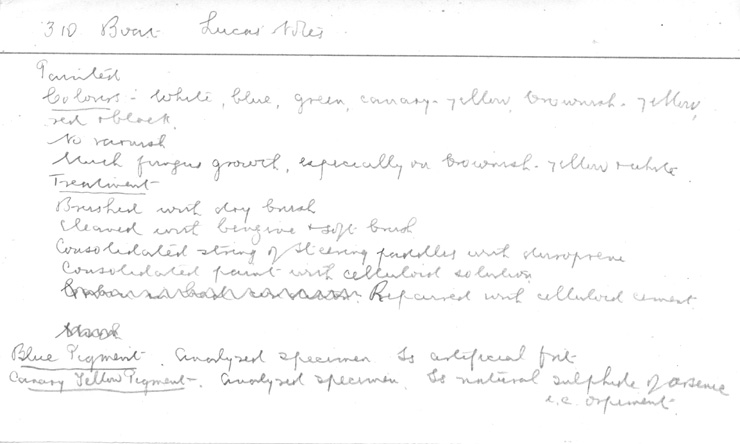 310 Boat Lucas' Notes
Painted
Colours - White, blue, green, canary-yellow, brownish-yellow,
red + black.
No varnish
Much fungus growth, especially on brownish-yellow + white.
Treatment
Brushed with dry brush
Cleaned with benzine + soft brush
Consolidated string of steering paddles with duroprene
Consolidated paint with celluloid solution
Repaired with celluloid cement
Blue Pigment. Analysed specimen. Is artificial frit
Canary Yellow Pigment. Analysed specimen. Is natural sulphide of arsenic
i.e. orpiment.